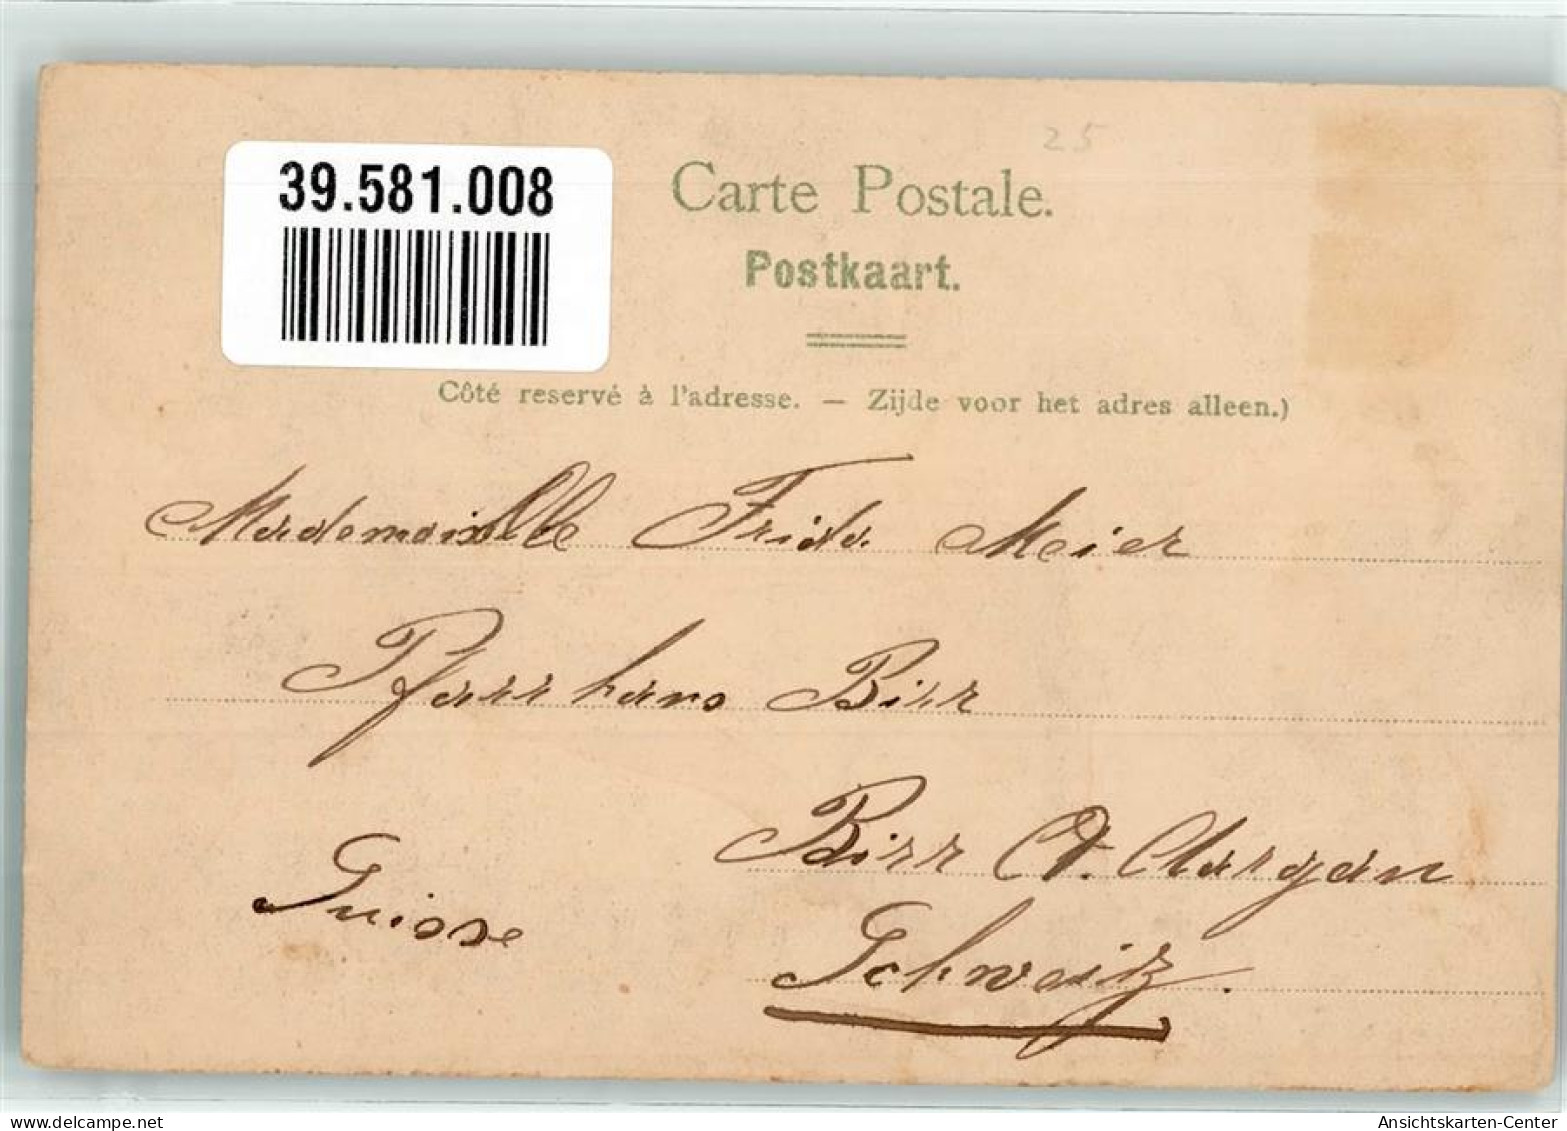 39.581.008
25
Carte Postale.
Postkaart.
Côté reservé à l'adresse. — Zijde voor het adres alleen.)
Mademoiselle Frida Meier
Pfarrhaus Birr
Birr Ct. Aargau
Suisse
Schweiz.
www.delcampe.net
Ansichtskarten-Center